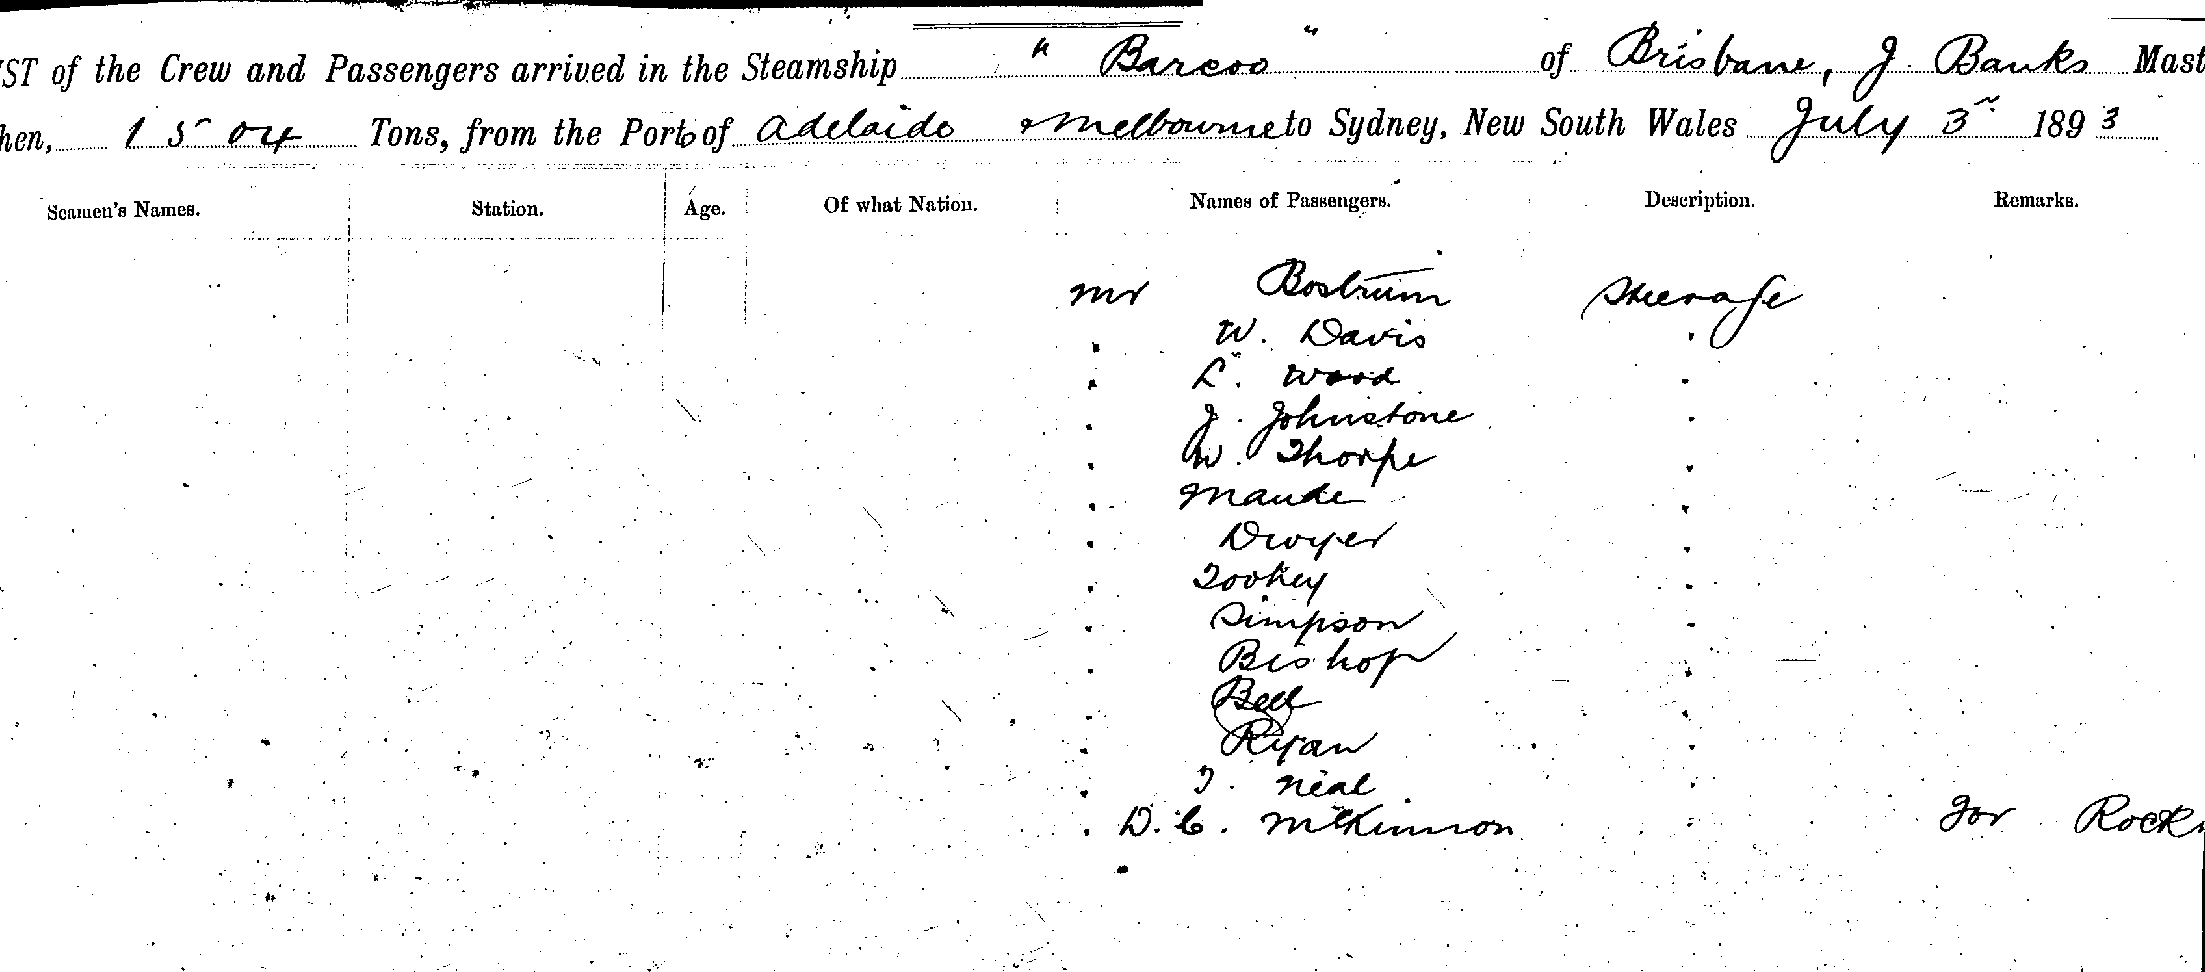 IST of the Crew and Passengers arrived in the Steamship " Barcoo " of Brisbane, J. Banks Mast
hen, 1504 Tons, from the Port of Adelaide & Melbourne to Sydney, New South Wales July 3rd 1893
Seamen's Names. Station. Age. Of what Nation. Names of Passengers. Description. Remarks.
Mr Bostrum Steerage
" W. Davis "
" L. Wood "
" J. Johnstone "
" W. Thorpe "
" Maude "
" Dwyer "
" Tookey "
" Simpson "
" Bishop "
" Bell "
" Ryan "
" T. Neal "
" D. C. McKinnon " for Rock